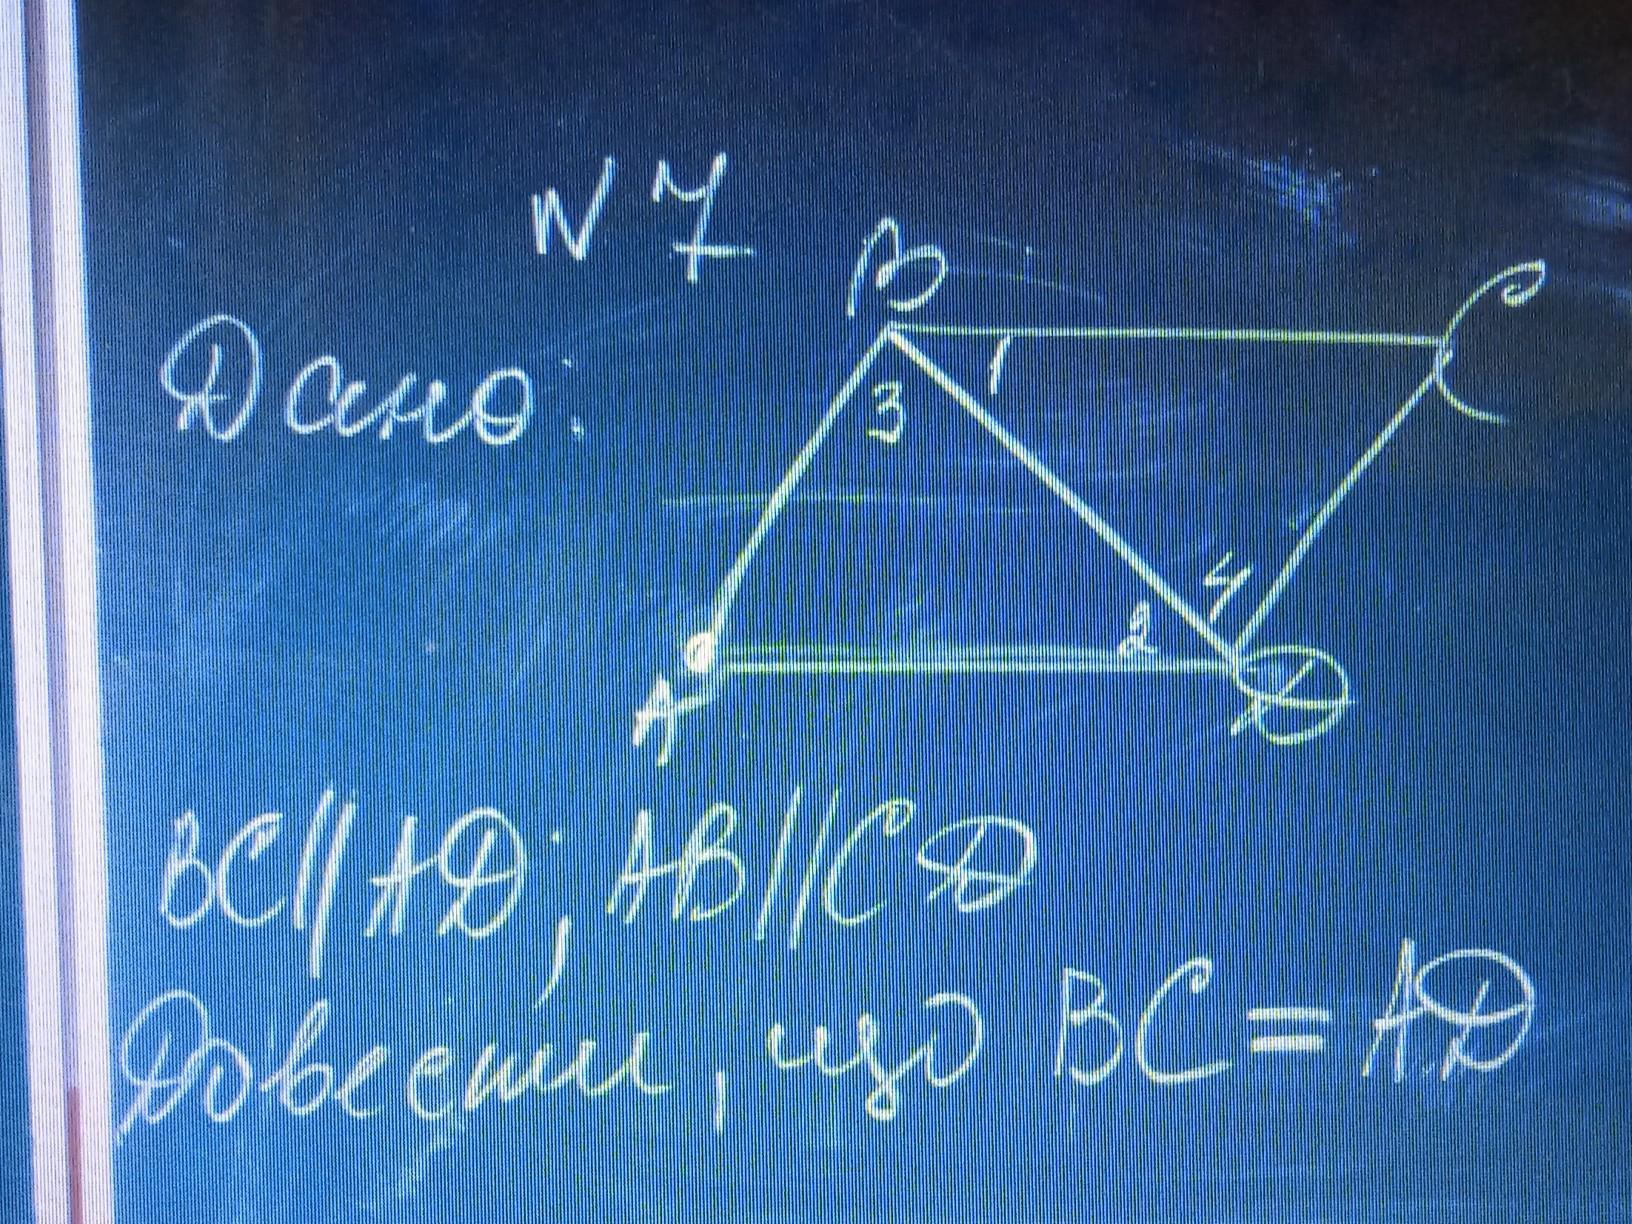 N 7
Дано:
B
C
1
3
4
2
A
D
BC||AD; AB||CD
Довести, що BC=AD